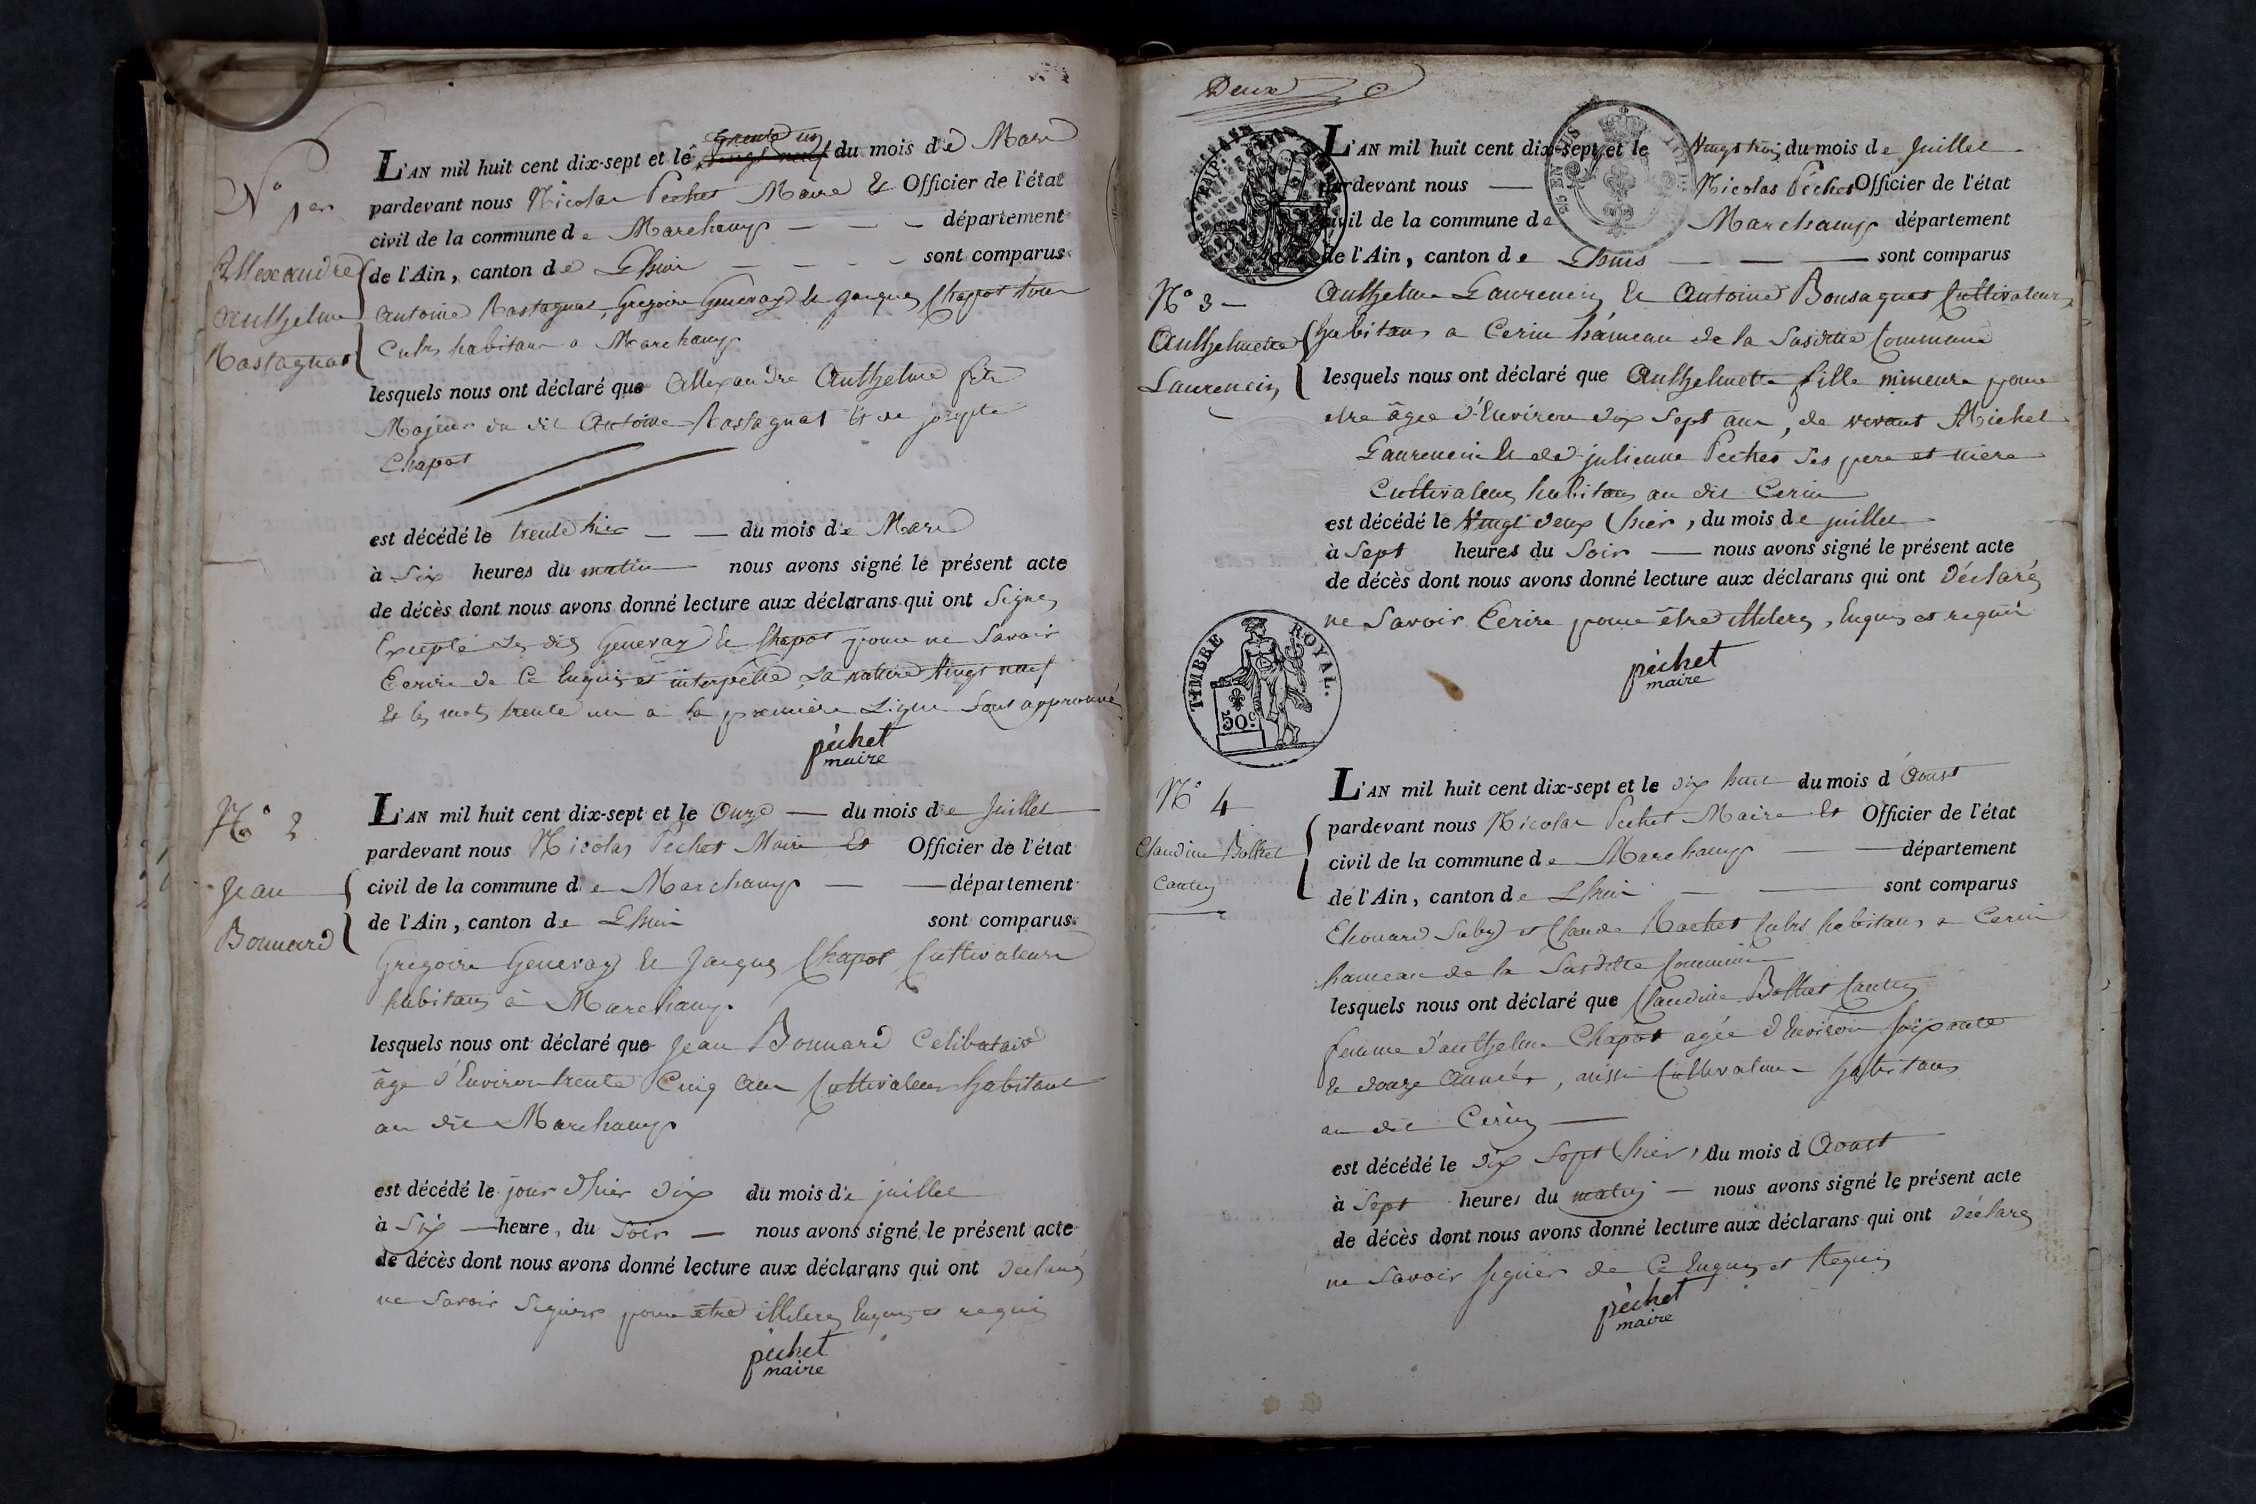 N.° 1er
Allexandre
Anthelme
Rastagnat
L'AN mil huit cent dix-sept et le trente un vingt neuf du mois de Mars
pardevant nous Nicolas Pechet Maire Et Officier de l'état
civil de la commune de Marchamp département
de l'Ain, canton de Lhuis sont comparus
Antoine Rastagnat, Gregoire Genevay Et Jacques Chapot tous
Cultrs habitans a Marchamp
lesquels nous ont déclaré que Allexandre Anthelme fils
Majeur du dit Antoine Rastagnat Et de
Chapot
est décédé le trente hier du mois de Mars
à Six heures du matin nous avons signé le présent acte
de décès dont nous avons donné lecture aux déclarans qui ont Signés
Excepté les dits Genevay Et Chapot pour ne Savoir
Ecrire de Ce Enquis et interpellé, La rature Vingt neuf
Et les mots trente un a la premiere Ligne Sont approuvés
péchet
maire
N.° 2
Jean
Bonnard
L'AN mil huit cent dix-sept et le Onze du mois de Juillet
pardevant nous Nicolas Pechet Maire Et Officier de l'état
civil de la commune de Marchamp département
de l'Ain, canton de Lhuis sont comparus
Gregoire Genevay Et Jacques Chapot Cultivateurs
habitans a Marchamp
lesquels nous ont déclaré que Jean Bonnard Celibataire
âge d'Environ trente Cinq ans Cultivateur habitant
au dit Marchamp
est décédé le jour d'hier dix du mois de juillet
à Six heures du Soir nous avons signé le présent acte
de décès dont nous avons donné lecture aux déclarans qui ont déclarés
ne Savoir Signer pour être illiterés Enquis et requis
péchet
maire
Deux
TIMBRE ROYAL.
50 c
N.° 3
Anthelmette
Laurencin
L'AN mil huit cent dix-sept et le Vingt trois du mois de Juillet
pardevant nous Nicolas Pechet Officier de l'état
civil de la commune de Marchamp département
de l'Ain, canton de Lhuis sont comparus
Anthelme Laurencin Et Antoine Cultivateurs
habitans a Cerin hameau de la Susditte Commune
lesquels nous ont déclaré que Anthelmette fille mineure pour
etre âgée d'Environ dix Sept ans, de vivant Michel
Laurencin Et de julienne Pechet Ses pere et mere
Cultivateurs habitans au dit Cerin
est décédé le Vingt deux hier, du mois de juillet
à Sept heures du Soir nous avons signé le présent acte
de décès dont nous avons donné lecture aux déclarans qui ont Déclarés
ne Savoir Ecrire pour être illiterés, Enquis et requis
péchet
maire
N.° 4
Claudine
L'AN mil huit cent dix-sept et le dix huit du mois d'Aoust
pardevant nous Nicolas Pechet Maire Et Officier de l'état
civil de la commune de Marchamp département
de l'Ain, canton de Lhuis sont comparus
Claude Cultrs habitans a Cerin
hameau de la Susditte Commune
lesquels nous ont déclaré que Claudine
femme d'anthelme Chapot agée d'Environ Soixante
Et douze Années, aussi Cultivateurs habitans
au dit Cerin
est décédé le dix Sept hier, du mois d Aoust
à Sept heures du matin nous avons signé le présent acte
de décès dont nous avons donné lecture aux déclarans qui ont déclarés
ne Savoir Signer de Ce Enquis et Requis
péchet
maire